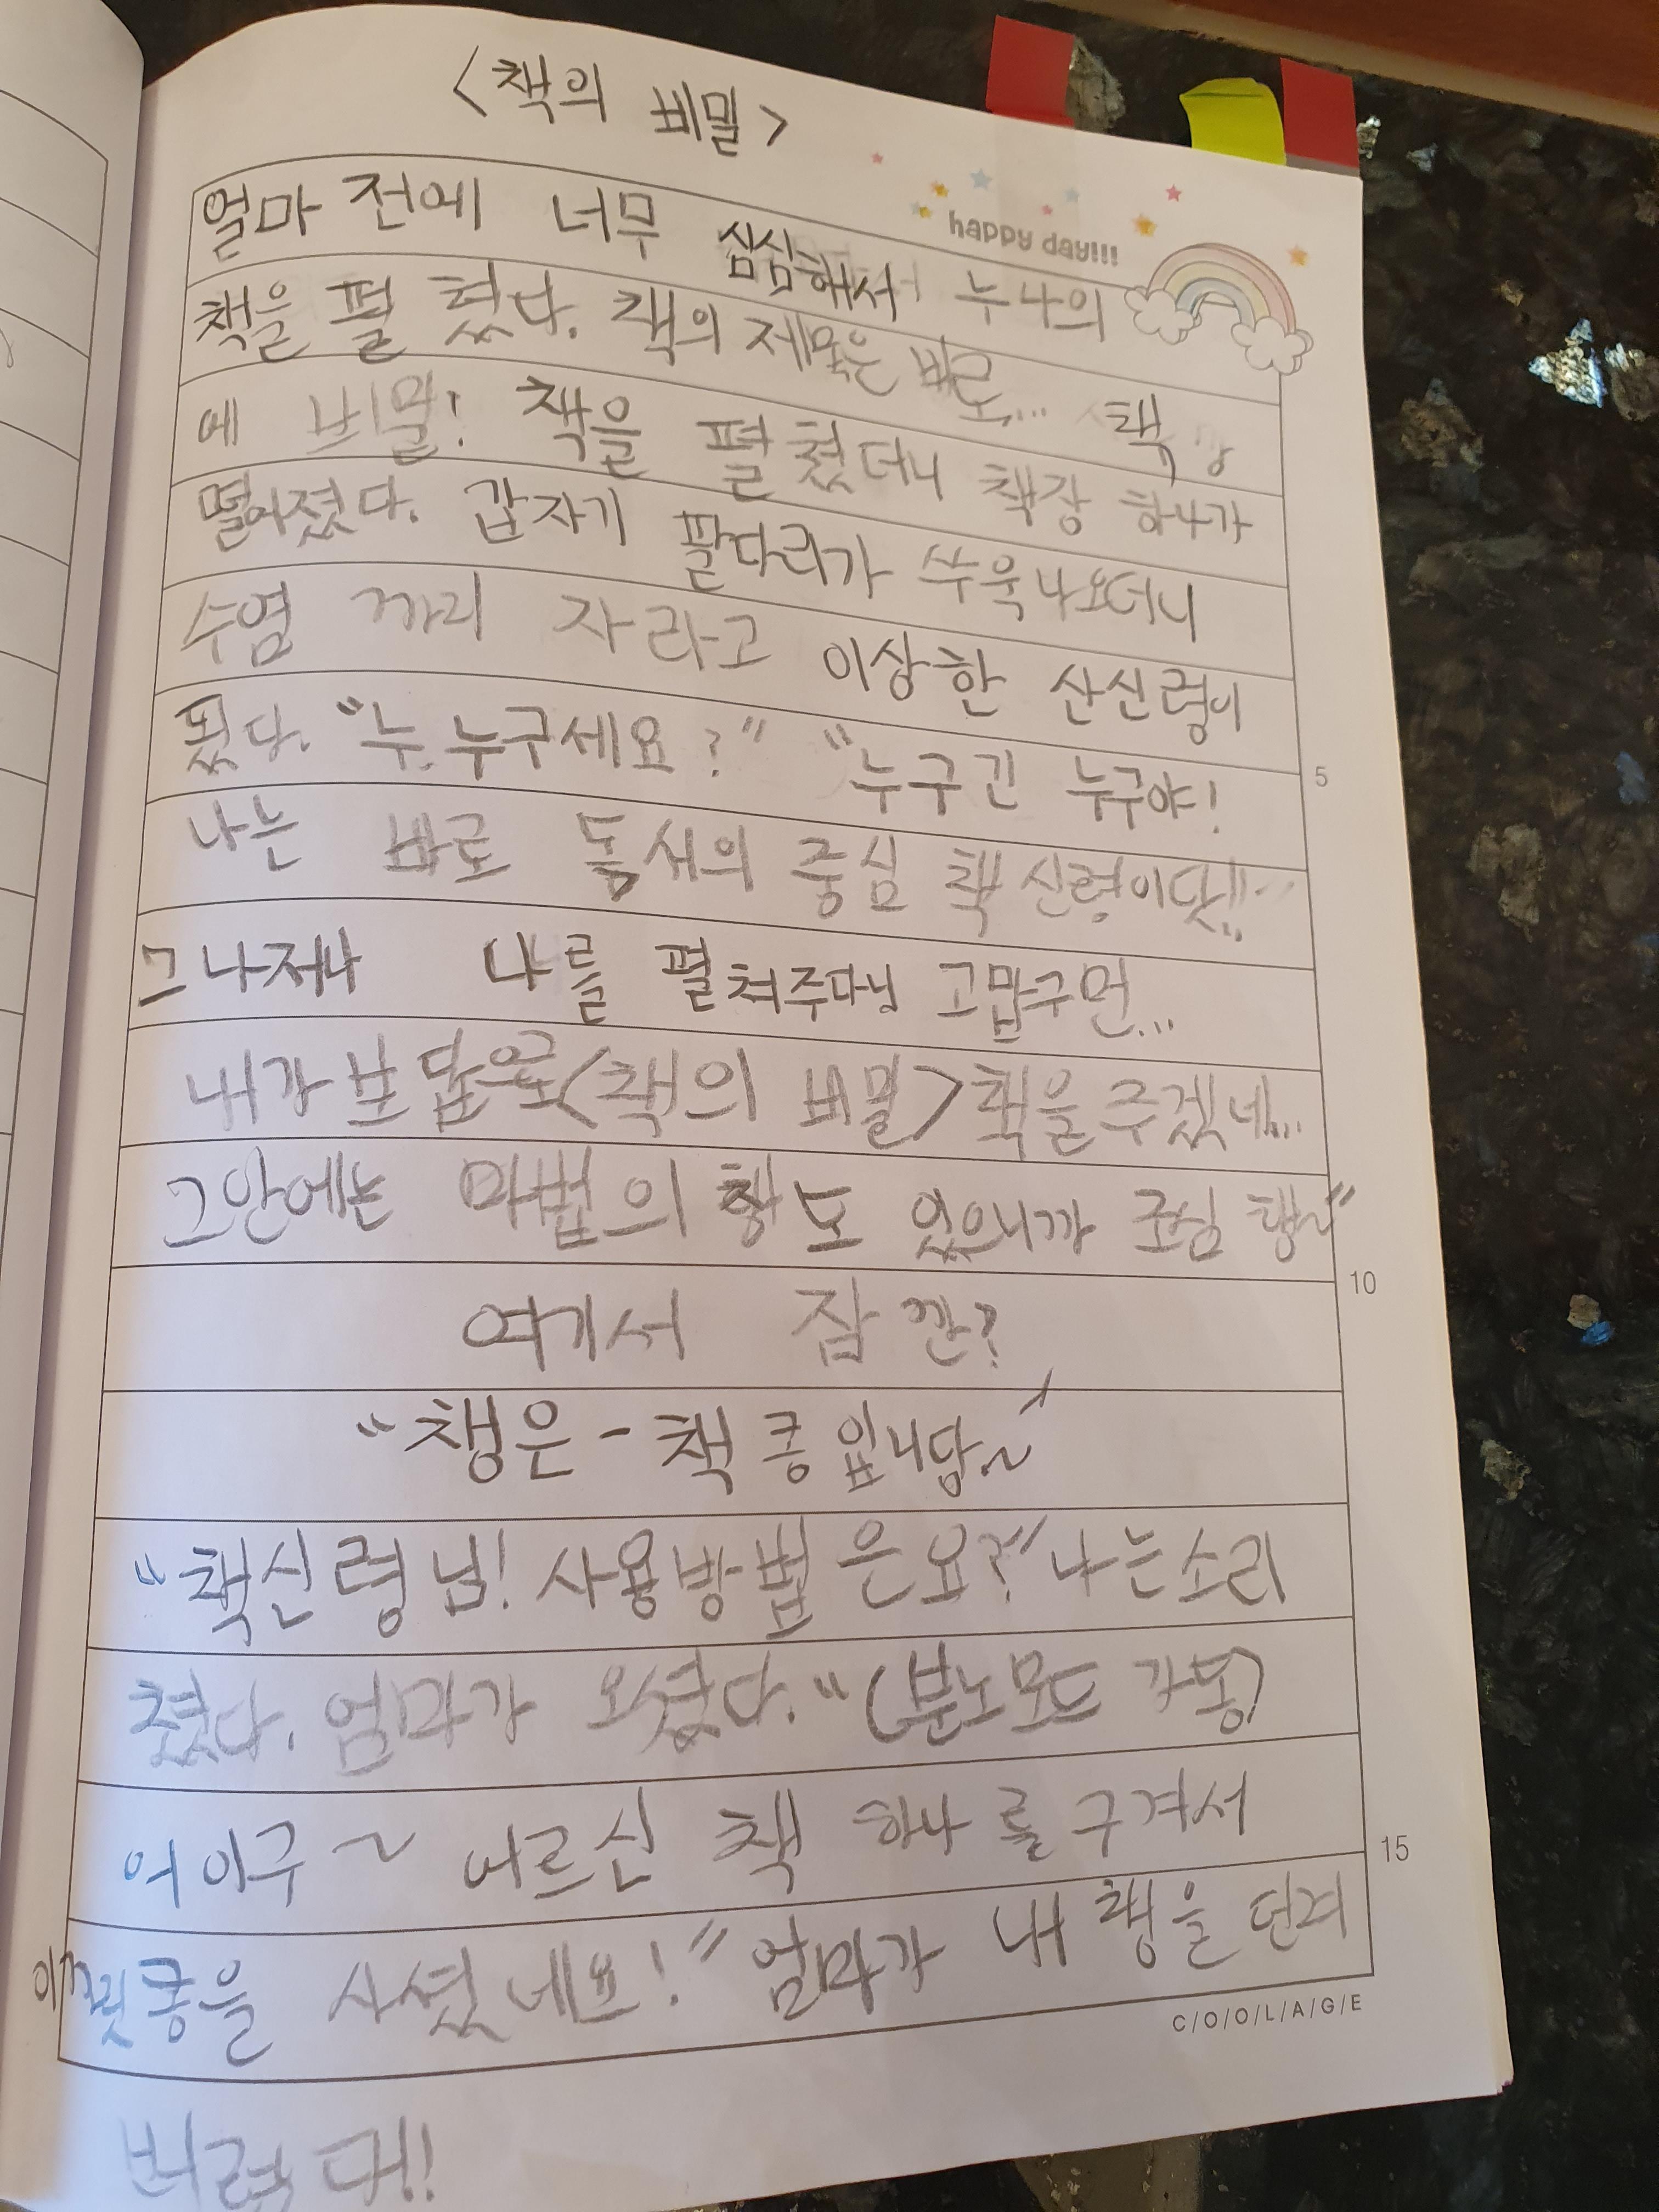 <책의 비밀>
happy day!!!
얼마 전에 너무 심심해서 누나의
책을 펼쳤다. 책의 제목은 바로... 책
에 비밀! 책을 펼쳤더니 책장 하나가
떨어졌다. 갑자기 팔다리가 쑤욱 나오더니
수염 까지 자라고 이상한 산신령이
됬다. "누.누구세요?" "누구긴 누구야!
나는 바로 독서의 중심 책 신령이닷!!
그나저나 나를 펼쳐주다니 고맙구먼...
내가 보답으로 <책의 비밀> 책을 주겠네...
그안에는 마법의 책도 있으니까 조심
여기서 잠깐?
"챙은-책 콩입니당~"
"책신령님! 사용방법은요?" 나는 소리
쳤다. 엄마가 오셨다. "(분노모드 가동)
어이구~ 어르신 책 하나를 구겨서
사셨네요! " 엄마가 내 챙을 던져
버렸대!!
5
10
15
C/O/O/L/A/G/E